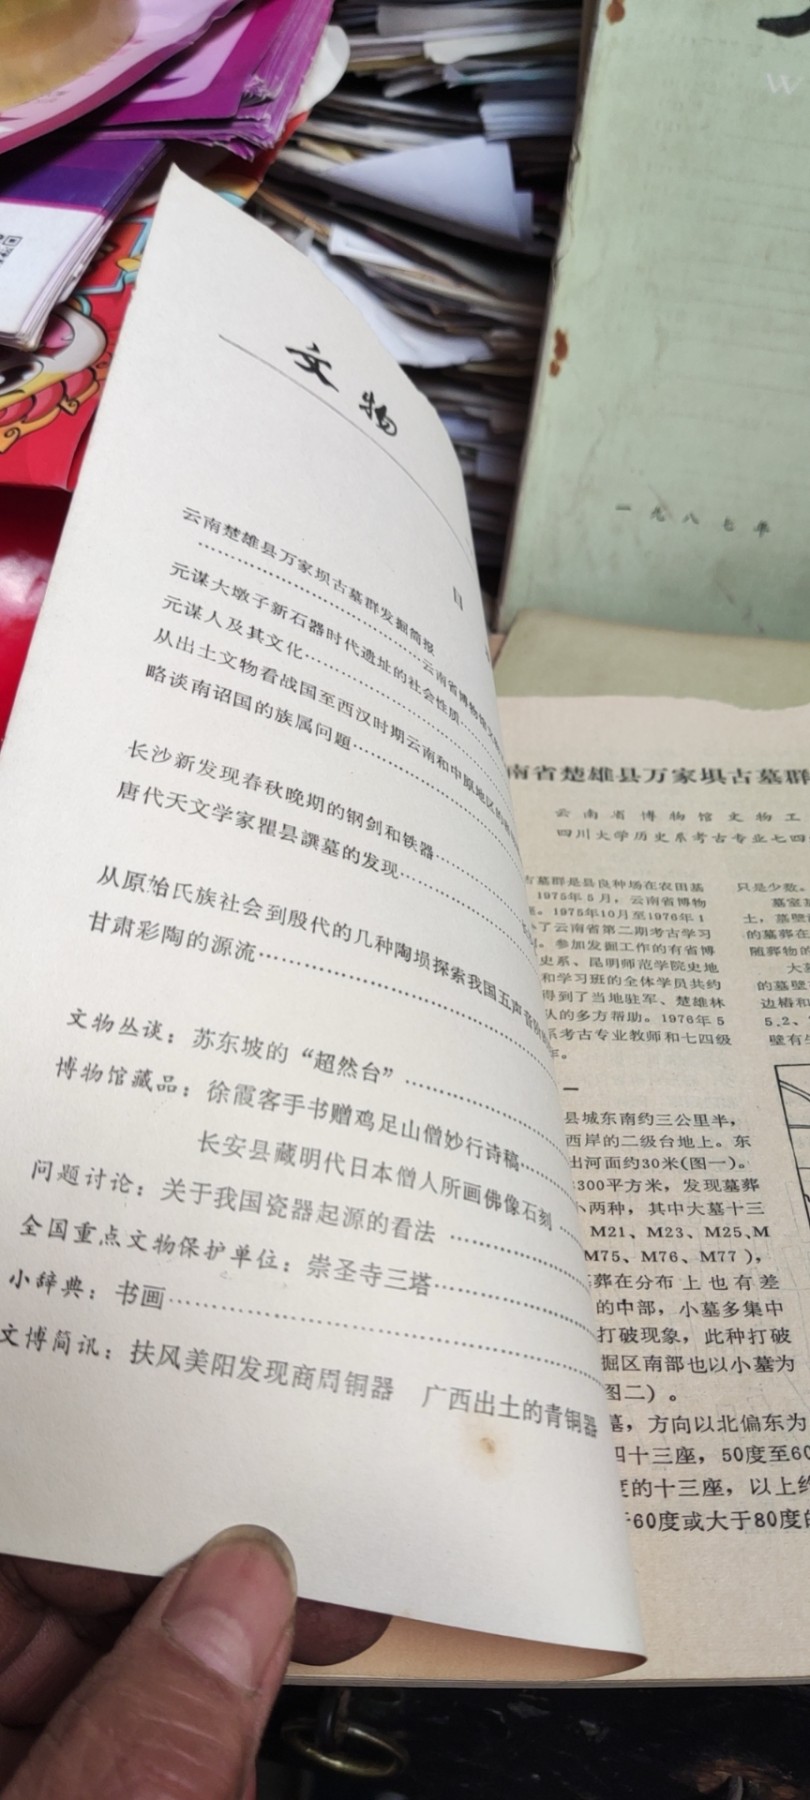 文物
目
云南楚雄县万家坝古墓群发掘简报
……云南省博物馆文
元谋大墩子新石器时代遗址的社会性质……
元谋人及其文化……
从出土文物看战国至西汉时期云南和中原地区的
略谈南诏国的族属问题……
长沙新发现春秋晚期的钢剑和铁器……
唐代天文学家瞿昙譔墓的发现……
从原始氏族社会到殷代的几种陶埙探索我国五声音
甘肃彩陶的源流……
文物丛谈：苏东坡的“超然台”……
博物馆藏品：徐霞客手书赠鸡足山僧妙行诗稿……
长安县藏明代日本僧人所画佛像石刻……
问题讨论：关于我国瓷器起源的看法……
全国重点文物保护单位：崇圣寺三塔……
小辞典：书画……
文博简讯：扶风美阳发现商周铜器 广西出土的青铜器
W
一九八七年
南省楚雄县万家坝古墓群
云南省博物馆文物工
四川大学历史系考古专业七四
古墓群是县良种场在农田基
1975年5月，云南省博物
。1975年10月至1976年1
了云南省第二期考古学习
。参加发掘工作的有省博
史系、昆明师范学院史地
和学习班的全体学员共约
得到了当地驻军、楚雄林
队的多方帮助。1976年5
系考古专业教师和七四级
。
一
县城东南约三公里半，
西岸的二级台地上。东
出河面约30米(图一)。
300平方米，发现墓葬
小两种，其中大墓十三
M21、M23、M25、M
M75、M76、M77），
葬在分布上也有差
的中部，小墓多集中
打破现象，此种打破
掘区南部也以小墓为
图二）。
墓，方向以北偏东为
四十三座，50度至60
度的十三座，以上约
于60度或大于80度的
只是少数。
墓室墓
土，墓壁
的墓葬在
随葬物的
大墓
的墓壁
边椿和
5.2、
壁有生